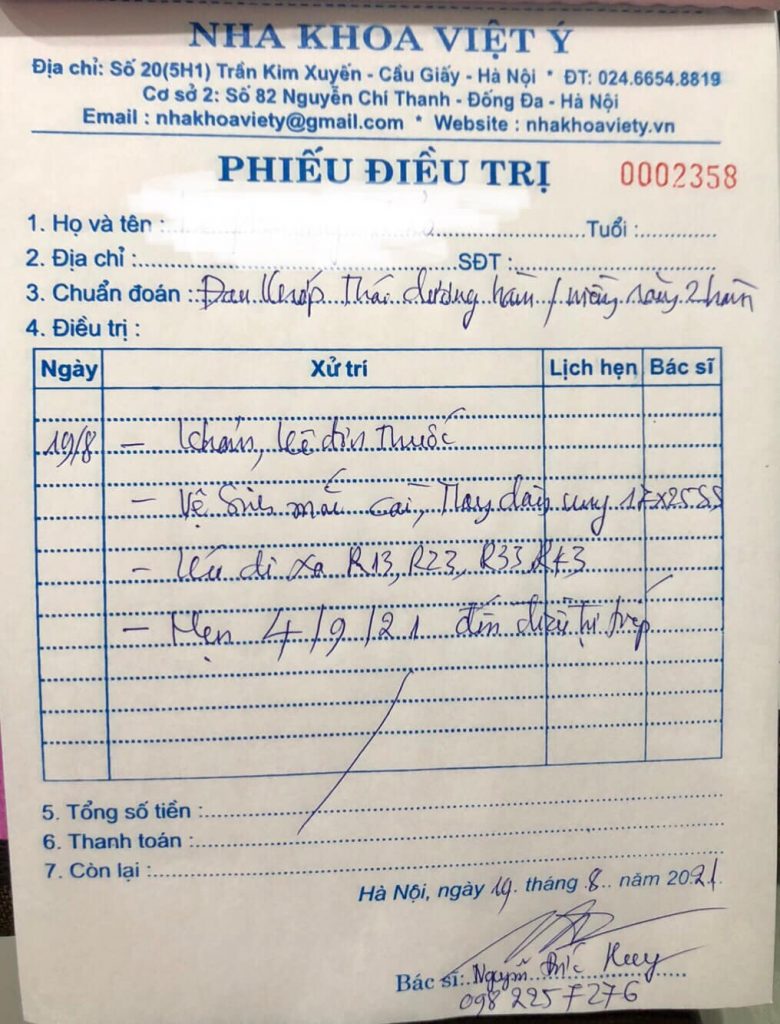 NHA KHOA VIỆT Ý
Địa chỉ: Số 20(5H1) Trần Kim Xuyến - Cầu Giấy - Hà Nội * ĐT: 024.6654.8819
Cơ sở 2: Số 82 Nguyễn Chí Thanh - Đống Đa - Hà Nội
Email : nhakhoaviety@gmail.com * Website : nhakhoaviety.vn
PHIẾU ĐIỀU TRỊ 0002358
1. Họ và tên : Tuổi :
2. Địa chỉ : SĐT :
3. Chuẩn đoán : Đau khớp thái dương hàm / niềng răng 2 hàm
4. Điều trị :
Ngày Xử trí Lịch hẹn Bác sĩ
19/8 - Khám, kê đơn thuốc
- Vệ sinh mắc cài, thay dây cung 17x25SS
- Kéo di xa R13, R23, R33, R43
- Hẹn 4/9/21 đến điều trị tiếp
5. Tổng số tiền :
6. Thanh toán :
7. Còn lại :
Hà Nội, ngày 19 tháng 8 năm 2021
Bác sĩ: Nguyễn Đức Huy
098 225 7276